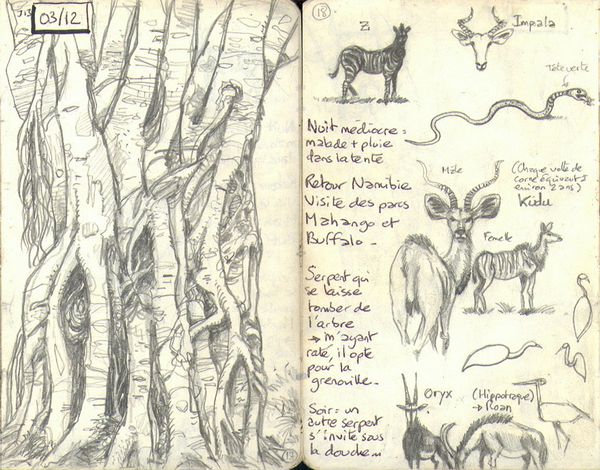 J18
03/12
18
Z
Impala
Tête verte
Nuit médiocre :
malade + pluie
dans la tente
Retour Namibie
Visite des parcs
Mahango et
Buffalo -
Mâle
(Chaque volte de
corne équivaut à
environ 2 ans)
Kudu
Femelle
Serpent qui
se laisse
tomber de
l'arbre
→ m'ayant
raté, il opte
pour la
grenouille -
Oryx
(Hippotrague)
→ Roan
Soir : un
autre serpent
s'invite sous
la douche...